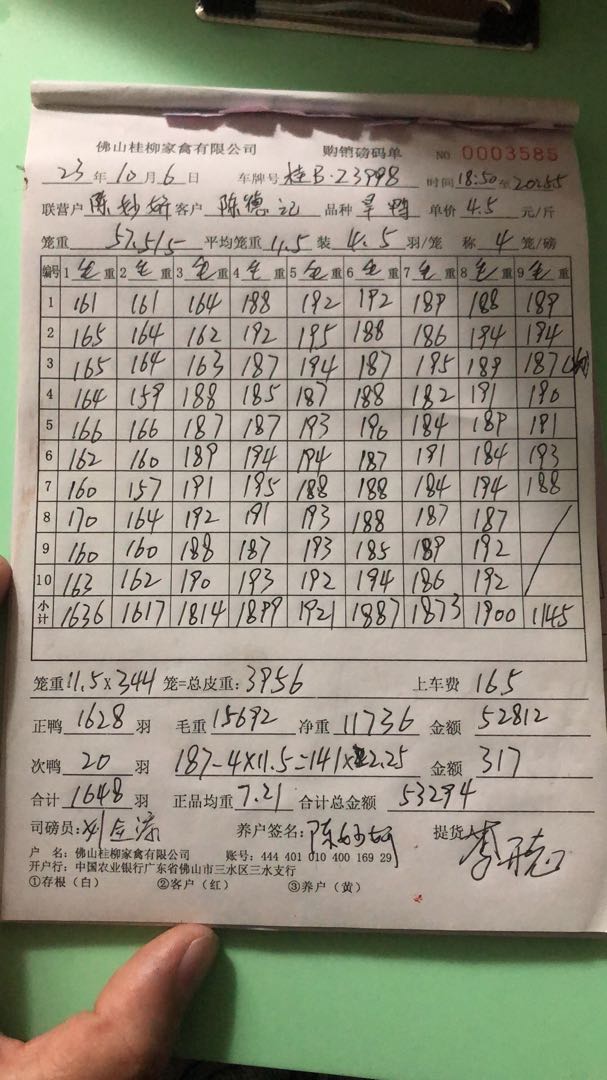 佛山桂柳家禽有限公司 购销磅码单 NO 0003585
23年10月6日 车牌号桂B·Z3998 时间18:50至20:55
联营户陈妙妍客户陈德记 品种旱鸭 单价4.5元/斤
笼重57.5/5 平均笼重11.5装4.5羽/笼 称4笼/磅
编号 1毛重 2毛重 3毛重 4毛重 5毛重 6毛重 7毛重 8毛重 9毛重
1 161 161 164 188 192 192 189 188 189
2 165 164 162 192 195 188 186 194 194
3 165 164 163 187 194 187 195 189 187
4 164 159 188 185 187 188 182 191 190
5 166 166 187 187 193 190 184 189 191
6 162 160 189 194 194 187 191 184 193
7 160 157 191 195 188 188 184 194 188
8 170 164 192 191 193 188 187 187
9 160 160 188 187 193 185 189 192
10 163 162 190 193 192 194 186 192
小计 1636 1617 1814 1899 1921 1887 1873 1900 1145
笼重11.5×344笼=总皮重:3956 上车费165
正鸭1628羽 毛重15692 净重11736 金额52812
次鸭20羽 187-4×11.5=141×2.25 金额317
合计1648羽 正品均重7.21 合计总金额53294
司磅员: 养户签名:陈妙妍 提货人
户 名:佛山桂柳家禽有限公司 账号:444 401 010 400 169 29
开户行:中国农业银行广东省佛山市三水区三水支行
①存根(白) ②客户(红) ③养户(黄)